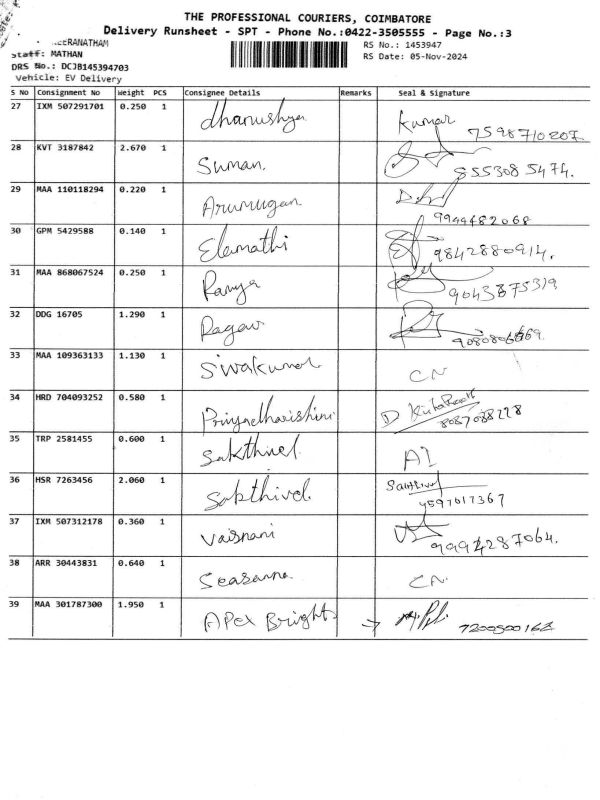 THE PROFESSIONAL COURIERS, COIMBATORE
Delivery Runsheet - SPT - Phone No.:0422-3505555 - Page No.:3
EERANATHAM
RS No.: 1453947
Staff: MATHAN
RS Date: 05-Nov-2024
DRS No.: DCJB145394703
Vehicle: EV Delivery
S No Consignment No Weight PCS Consignee Details Remarks Seal & Signature
27 IXM 507291701 0.250 1 dhanushya Kumar
7598710207
28 KVT 3187842 2.670 1 Suman.
855308 5474.
29 MAA 110118294 0.220 1 Arumugan
9944482068
30 GPM 5429588 0.140 1 Elamathi 9842880914.
31 MAA 868067524 0.250 1 Ramya
9043875319
32 DDG 16705 1.290 1 Ragav
33 MAA 109363133 1.130 1 Sivakumar CN
34 HRD 704093252 0.580 1 Priyadharishini D
8087088228
35 TRP 2581455 0.600 1 Sakthivel AI
36 HSR 7263456 2.060 1 Sakthivel. Sakthivel
4597017367
37 IXM 507312178 0.360 1 Vaisnani
9994287064.
38 ARR 30443831 0.640 1 Seasanna. CN
39 MAA 301787300 1.950 1 APex Brights →
7200500162